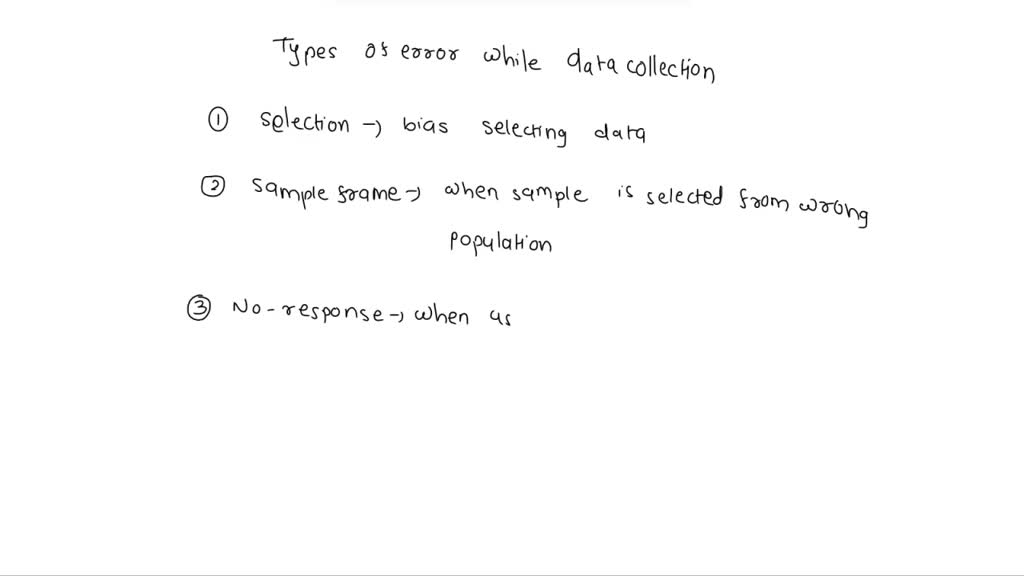 Types of error while data collection
① Selection → bias selecting data
② sample frame → when sample is selected from wrong
population
③ No-response → when us